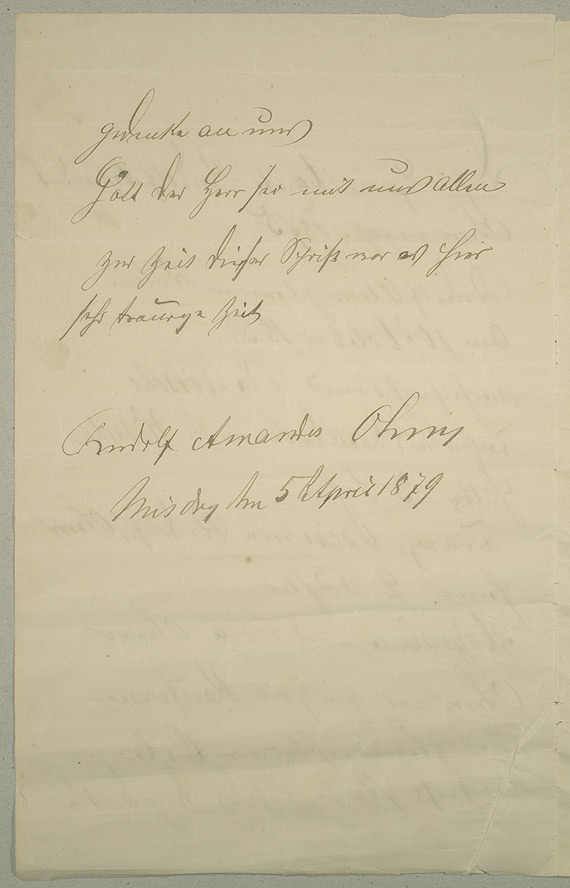 gedenke an uns
Gott der Herr sei mit uns allen
zur Zeit dieser Schrift war es hier
sehr traurige Zeit
Rudolf Amandus
den 5 April 1879